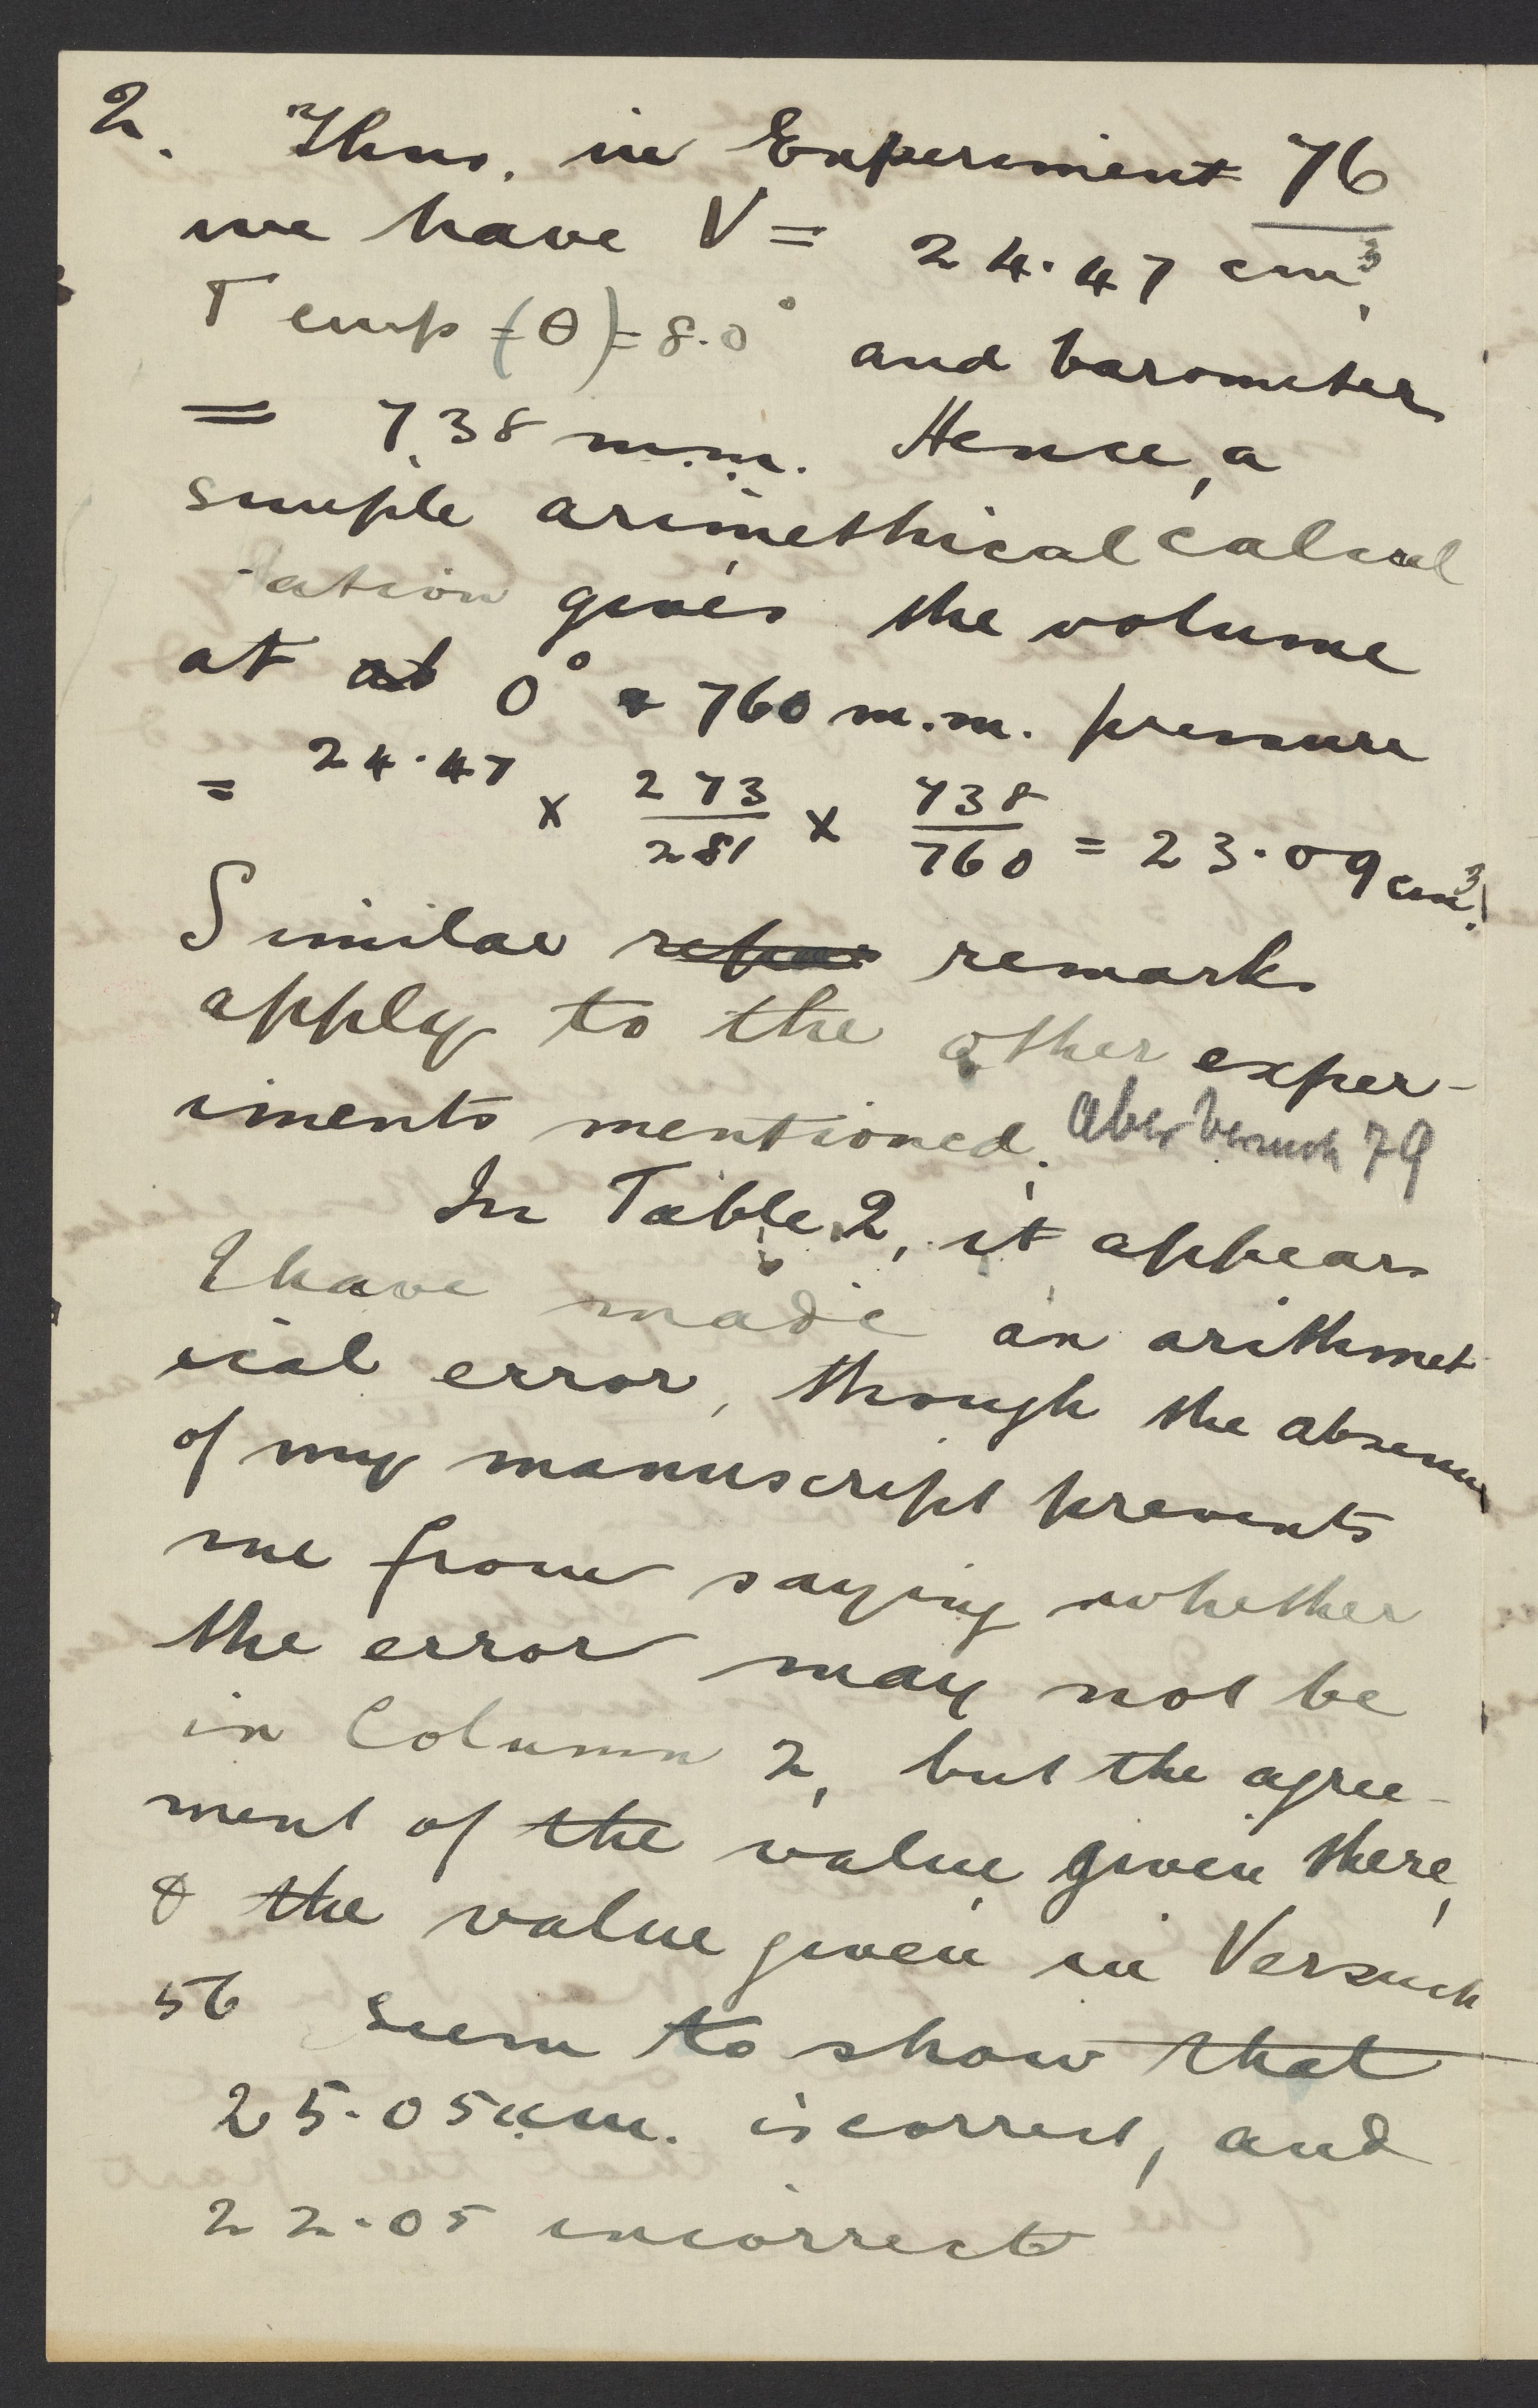 2. Thus, in Experiment 76
we have V = 24.47 cm³,
Temp (θ) = 8.0° and barometer
= 738 m.m. Hence, a
simple arimethical calcul
-ation gives the volume
at at 0° & 760 m.m. pressure
= 24.47 × 273/281 × 738/760 = 23.09 cm³.
Similar remarks
apply to the other exper-
iments mentioned. Aber Versuch 79
In Table 2, it appears
I have made an arithmet
ical error, though the absence
of my manuscript prevents
me from saying whether
the error may not be
in Column 2, but the agree-
ment of the value given there,
& the value given in Versuch
56 seem to show that
25.05 c.c.m. is correct, and
22.05 incorrect